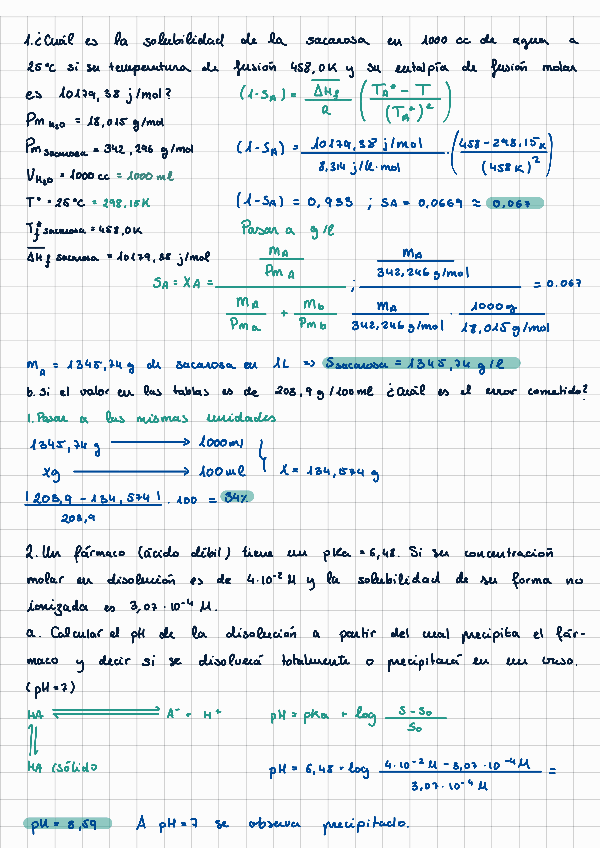 1. ¿Cuál es la solubilidad de la sacarosa en 1000 cc de agua a
25°C si su temperatura de fusión 458,0K y su entalpía de fusión molar
es 10179,38 j/mol? (1-SA) = ΔHf / a ( TA* - T / (TA*)² )
Pm H2O = 18,015 g/mol
Pm sacarosa = 342,296 g/mol (1-SA) = 10179,38 j/mol / 8,314 j/K·mol · ( 458-298,15K / (458K)² )
V H2O = 1000 cc = 1000 ml
T° = 25°C = 298,15K (1-SA) = 0,933 ; SA = 0,0669 ≈ 0,067
Tf* sacarosa = 458,0K Pasar a g/l
ΔHf sacarosa = 10179,38 j/mol
SA = XA = mA/PmA / mA/Pma + mb/Pmb ; mA/342,246 g/mol / mA/342,246 g/mol · 1000g/18,015 g/mol = 0.067
mA = 1345,74 g de sacarosa en 1L => Ssacarosa = 1345,74 g/l
b. Si el valor en las tablas es de 203,9 g/100ml ¿Cuál es el error cometido?
1. Pasar a las mismas unidades
1345,74 g → 1000ml
xg → 100ml x = 134,574 g
|203,9 - 134,574| / 203,9 · 100 = 34%
2. Un fármaco (ácido débil) tiene un pKa = 6,48. Si su concentración
molar en disolución es de 4·10⁻² M y la solubilidad de su forma no
ionizada es 3,07·10⁻⁴ M.
a. Calcular el pH de la disolución a partir del cual precipita el fár-
maco y decir si se disolverá totalmente o precipitará en un vaso.
(pH=7)
HA ⇌ A⁻ + H⁺ pH = pKa + log S-So / So
HA (sólido
pH = 6,48 + log 4·10⁻² M - 3,07·10⁻⁴ M / 3,07·10⁻⁴ M =
pH = 8,59 A pH=7 se observa precipitado.